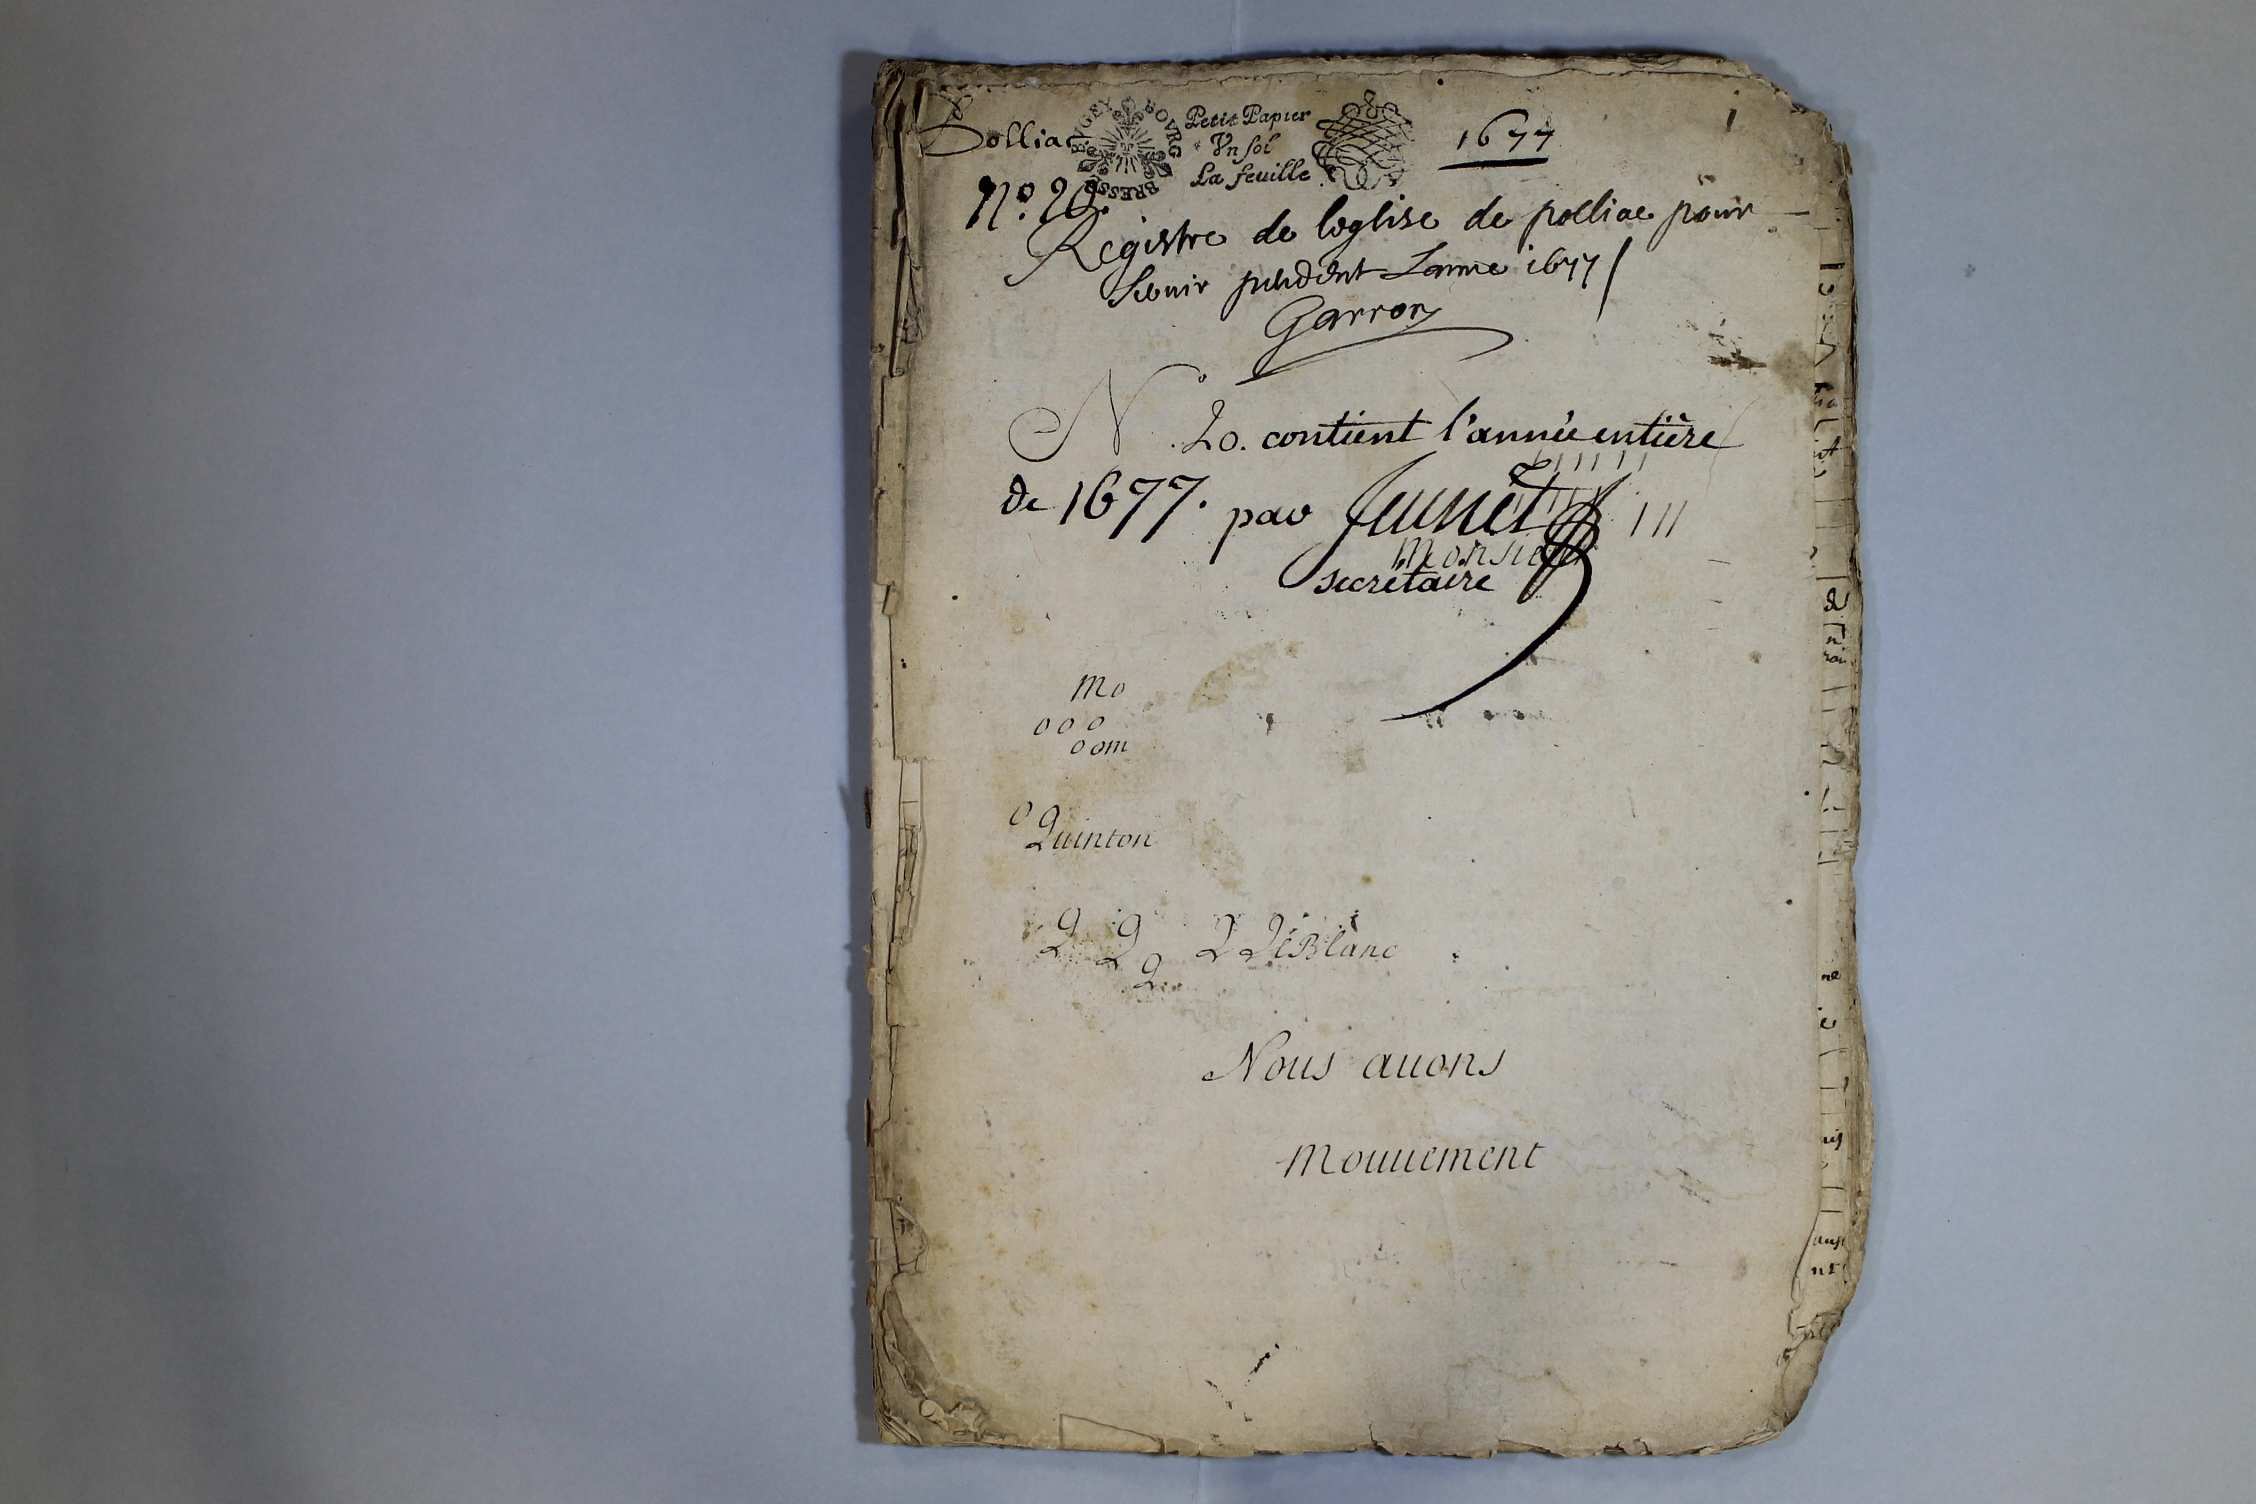 Polliac
BVGEY BOVRG BRESSE
Petit Papier
Vn sol
La feuille
1677
1
N.º 20.
Registre de leglise de polliac pour
servir pendent Lanne 1677
Garron
N º. 20. contient l'année entière
de 1677. par Jeunet
Monsieur
secrétaire
mo
o o o
o om
o
Quinton
Q Q Q Q LeBlanc
Nous auons
mouuement